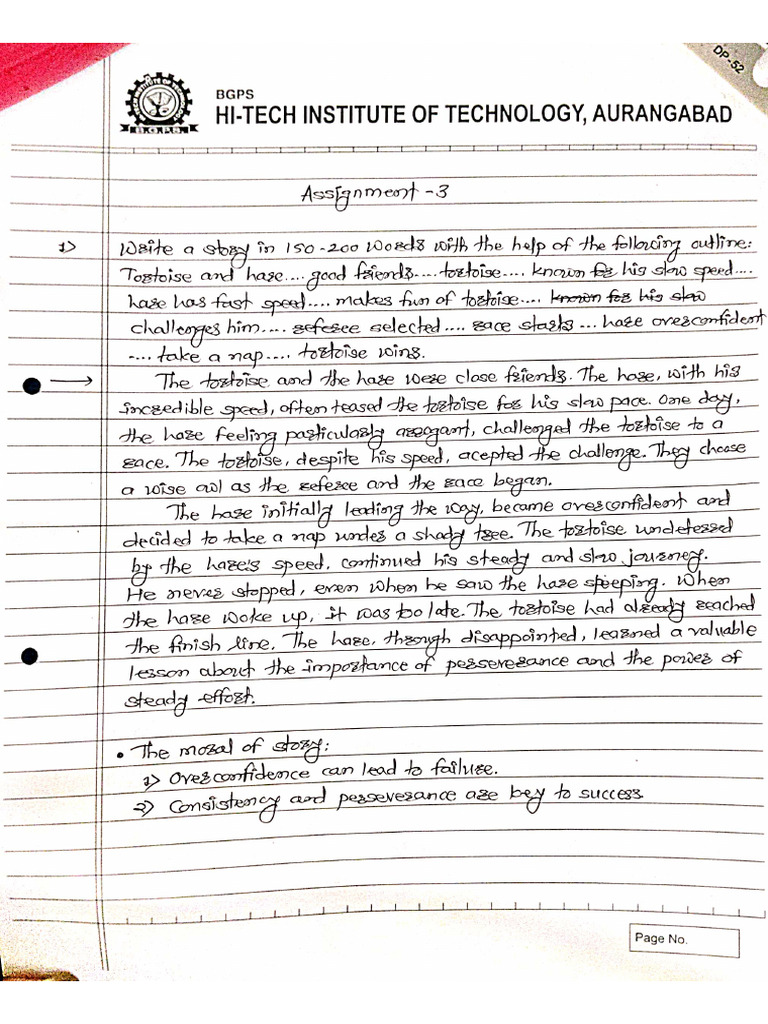 DP-52
BGPS
HI-TECH INSTITUTE OF TECHNOLOGY, AURANGABAD
B.G.P.S.
Assignment -3
1) Write a story in 150-200 words with the help of the following outline:
Tortoise and hare.... good friends.... tortoise.... known for his slow speed....
hare has fast speed.... makes fun of tortoise.... known for his slow
challenges him.... referee selected.... race starts... hare overconfident
.... take a nap.... tortoise wins.
The tortoise and the hare were close friends. The hare, with his
incredible speed, often teased the tortoise for his slow pace. One day,
the hare feeling particularly arrogant, challenged the tortoise to a
race. The tortoise, despite his speed, acepted the challenge. They choose
a wise owl as the referee and the race began.
The hare initially leading the way, became overconfident and
decided to take a nap under a shady tree. The tortoise undeterred
by the hare's speed, continued his steady and slow journey.
He never stopped, even when he saw the hare speeping. When
the hare woke up, it was too late. The tortoise had already reached
the finish line. The hare, through disappointed, learned a valuable
lesson about the importance of perseverance and the power of
steady effort.
• The moral of story:
1) Overconfidence can lead to failure.
2) Consistency and perseverance are key to success.
Page No.